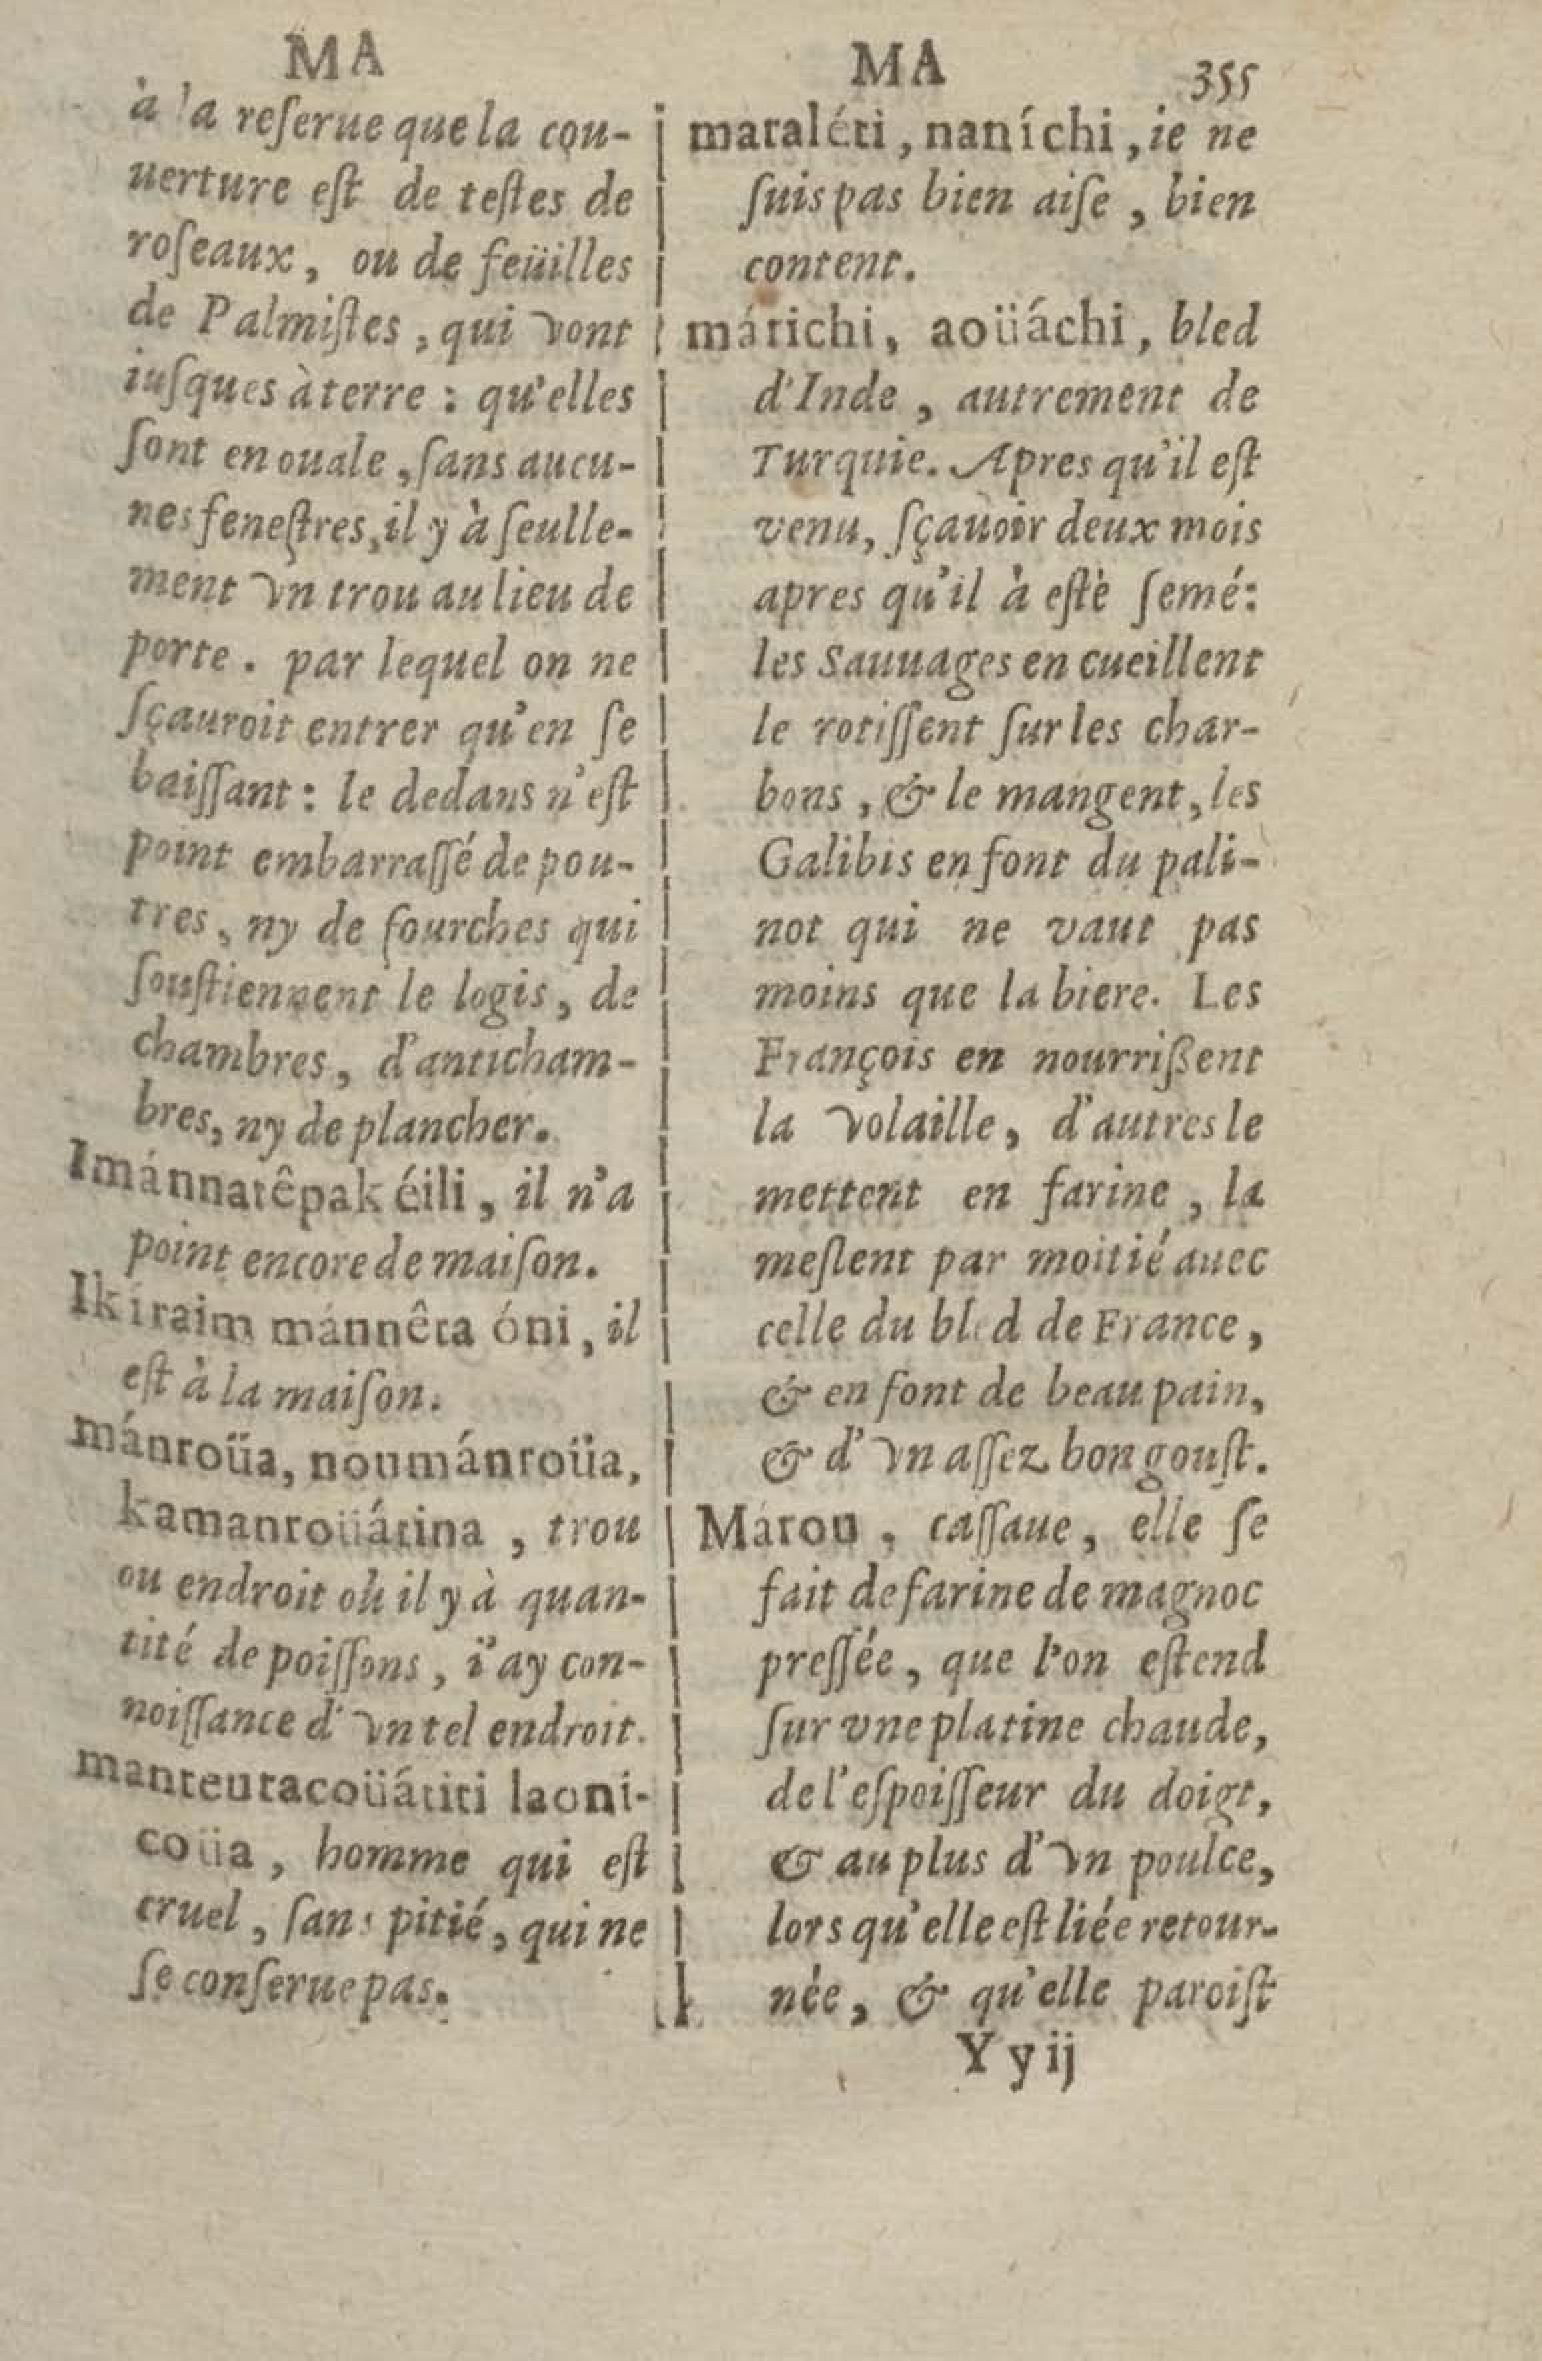 MA
à la reſerue que la cou-
uerture eſt de teſtes de
roſeaux, ou de feüilles
de Palmiſtes, qui vont
iuſques à terre : qu'elles
ſont en ouale, ſans aucu-
nes feneſtres, il y à ſeulle-
ment vn trou au lieu de
porte. par lequel on ne
ſçauroit entrer qu'en ſe
baiſſant : le dedans n'eſt
point embarraſſé de pou-
tres, ny de fourches qui
ſouſtiennent le logis, de
chambres, d'anticham-
bres, ny de plancher.
Imánnatêpa kéili, il n'a
point encore de maiſon.
Ikíraim mánnêta óni, il
eſt à la maiſon.
mánroüa, noumánroüa,
kamanroüátina, trou
ou endroit où il y à quan-
tité de poiſſons, i'ay con-
noiſſance d'vn tel endroit.
manteutacoüátiti laoni-
coüa, homme qui eſt
cruel, ſans pitié, qui ne
ſe conſerue pas.
MA 355
mataléti, naníchi, ie ne
ſuis pas bien aiſe, bien
content.
márichi, aoüáchi, bled
d'Inde, autrement de
Turquie. Apres qu'il eſt
venu, ſçauoir deux mois
apres qu'il à eſtè ſemé:
les Sauuages en cueillent
le rotiſſent ſur les char-
bons, & le mangent, les
Galibis en font du pali-
not qui ne vaut pas
moins que la biere. Les
François en nourrißent
la volaille, d'autres le
mettent en farine, la
meſlent par moitié auec
celle du bled de France,
& en font de beau pain,
& d'vn aſſez bon gouſt.
Márou, caſſaue, elle ſe
fait de farine de magnoc
preſſée, que l'on eſtend
ſur vne platine chaude,
de l'eſpoiſſeur du doigt,
& au plus d'vn poulce,
lors qu'elle eſt liée retour-
née, & qu'elle paroiſt
Y y ij